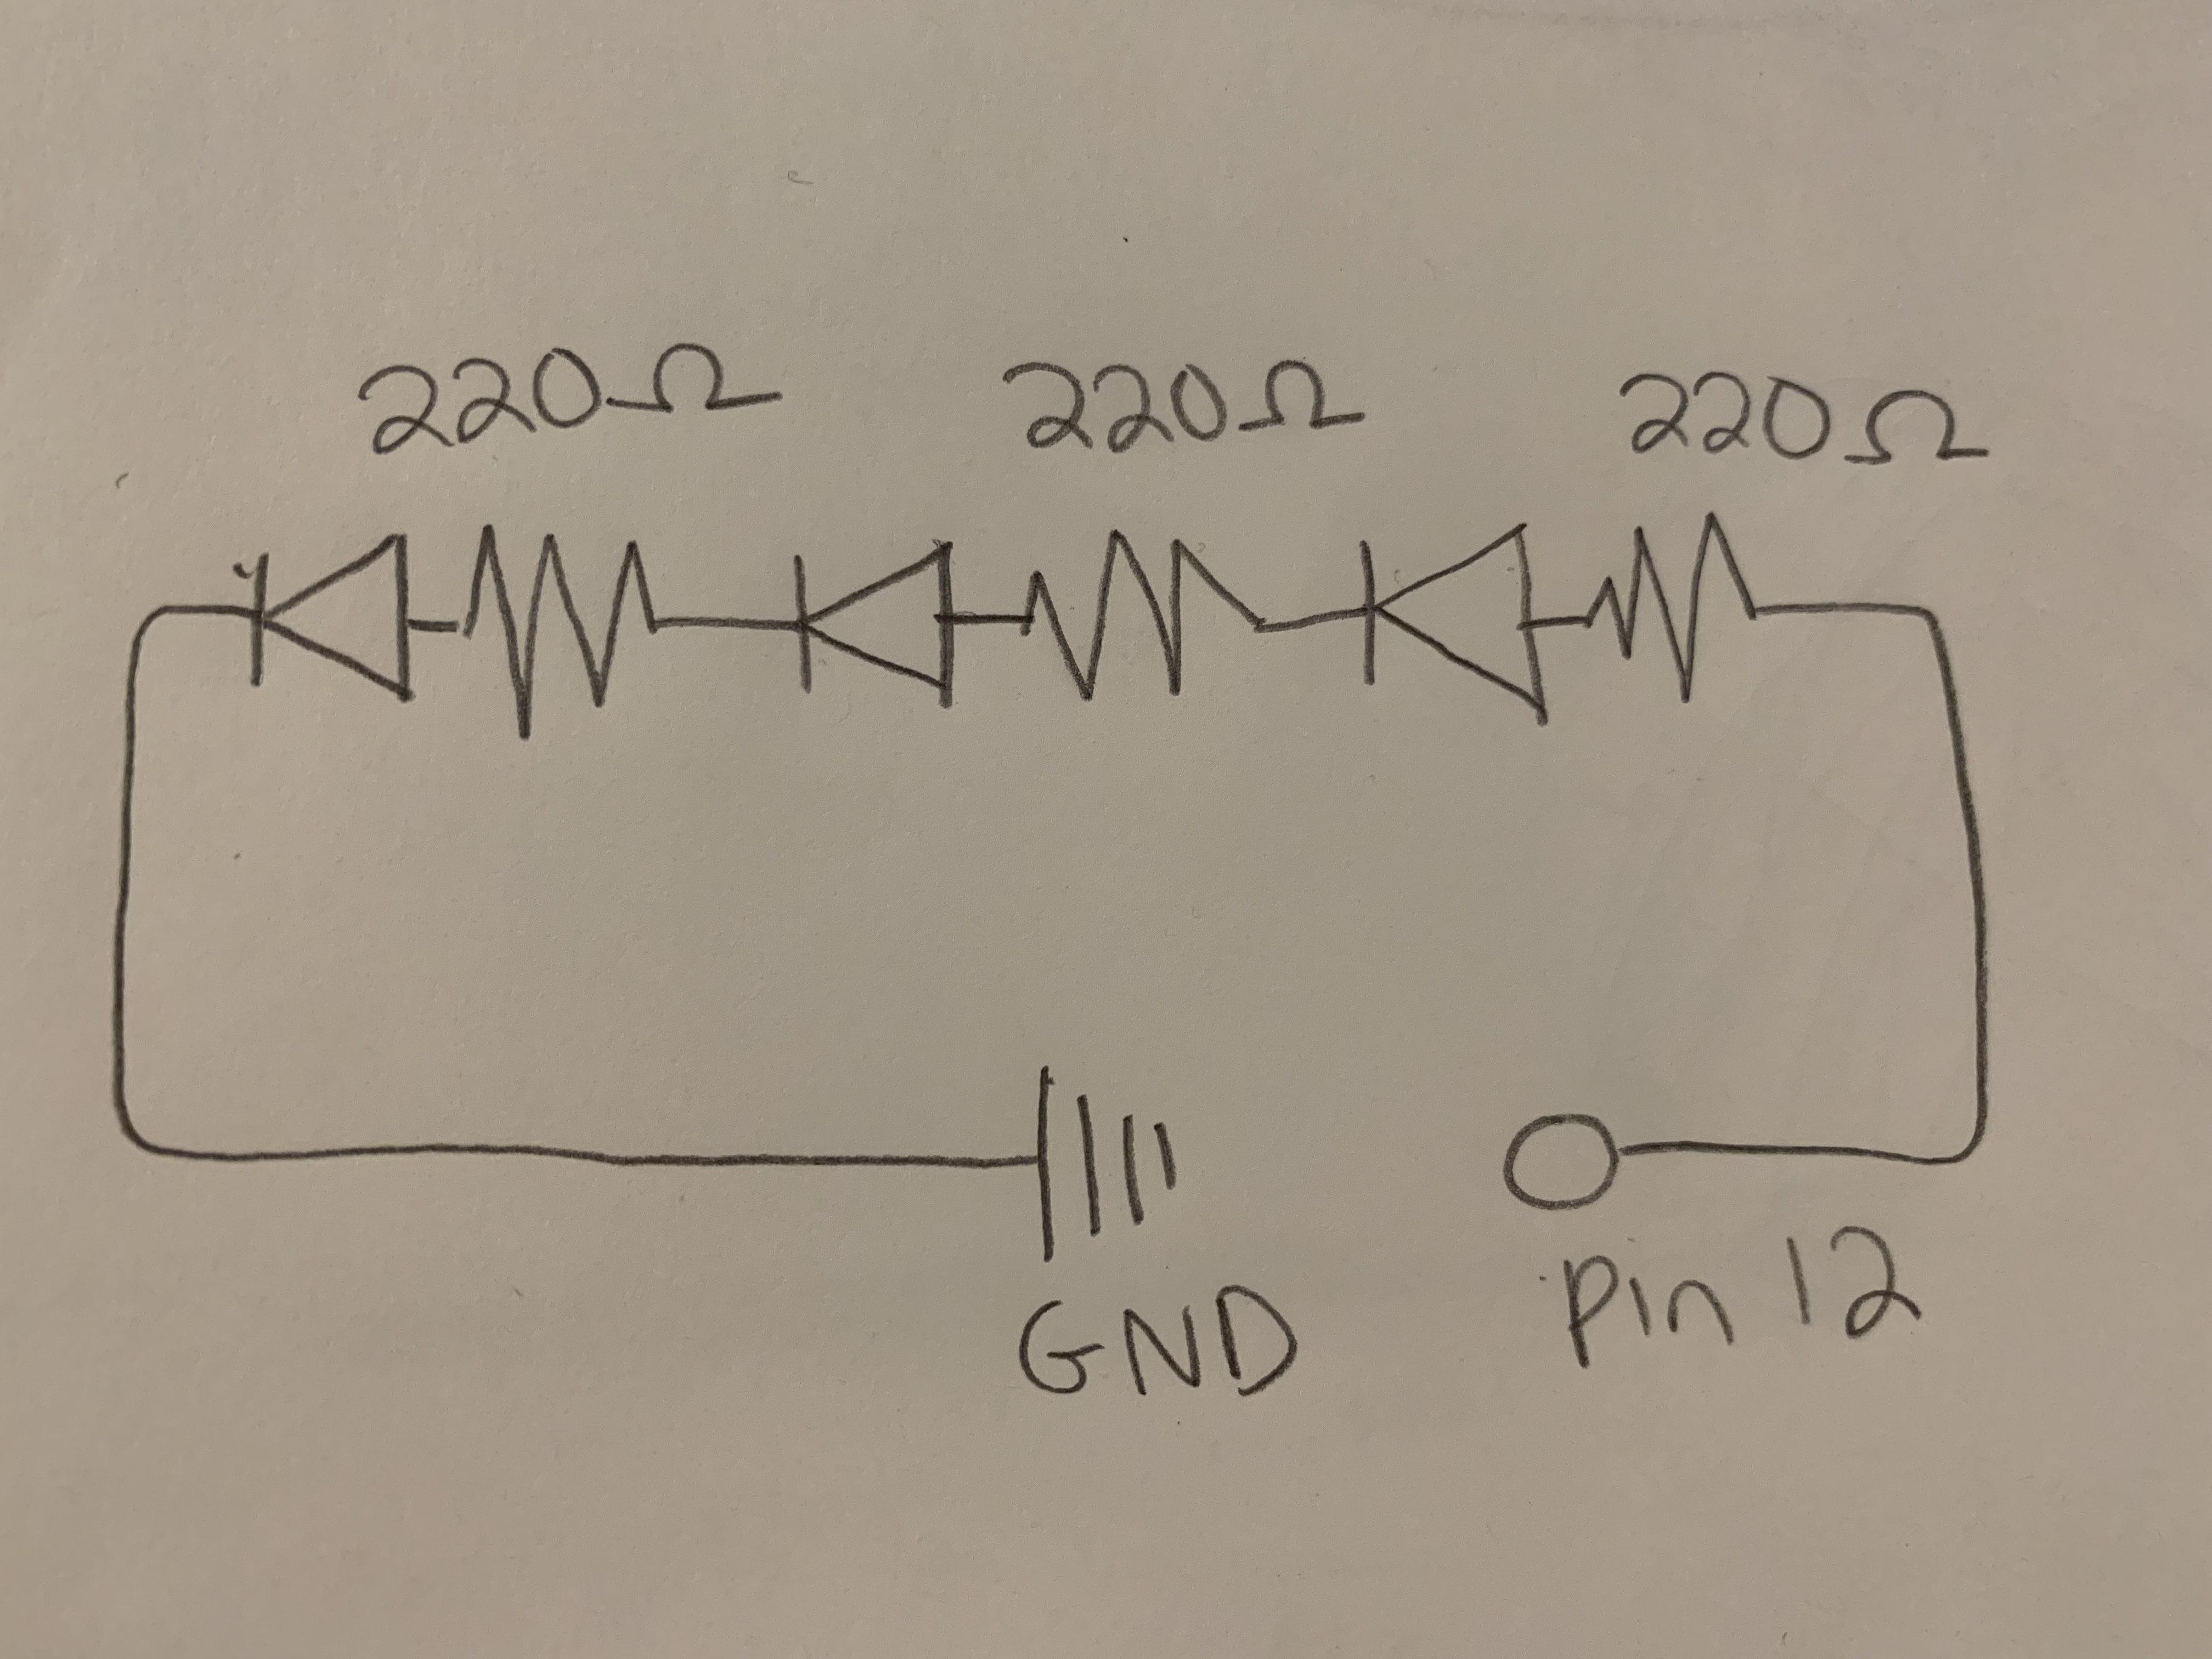 220Ω 220Ω 220Ω
GND
Pin 12